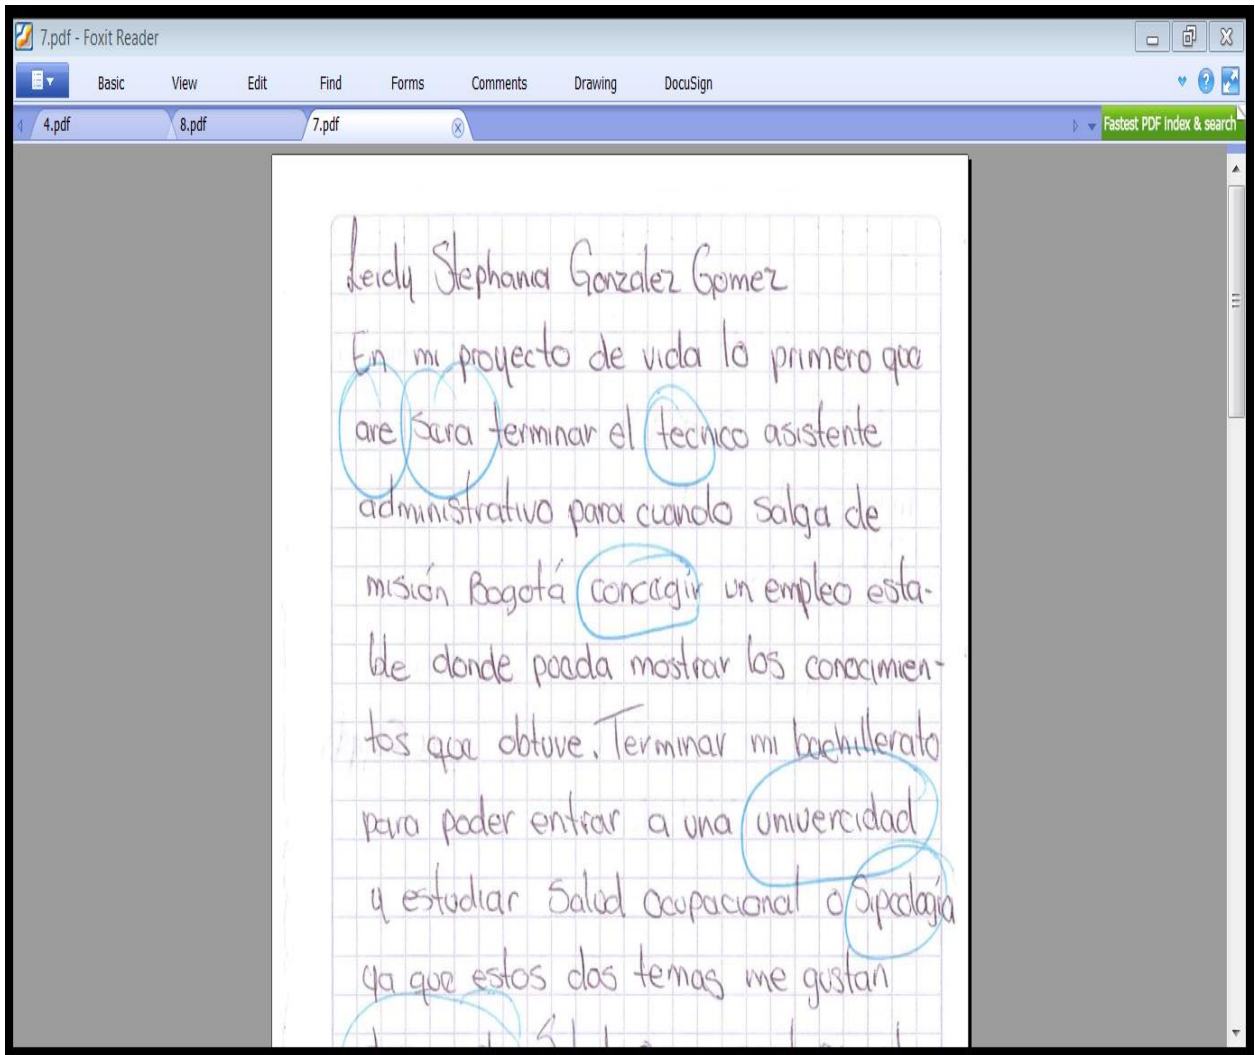 7.pdf - Foxit Reader
Basic View Edit Find Forms Comments Drawing DocuSign
4.pdf 8.pdf 7.pdf Fastest PDF index & search
Leidy Stephania Gonzalez Gomez
En mi proyecto de vida lo primero que
are sara terminar el tecnico asistente
administrativo para cuando salga de
misión Bogotá concegir un empleo esta-
ble donde pueda mostrar los conocimien-
tos que obtuve. Terminar mi bachillerato
para poder entrar a una univercidad
y estudiar Salud Ocupacional o Sipcología
ya que estos dos temas me gustan